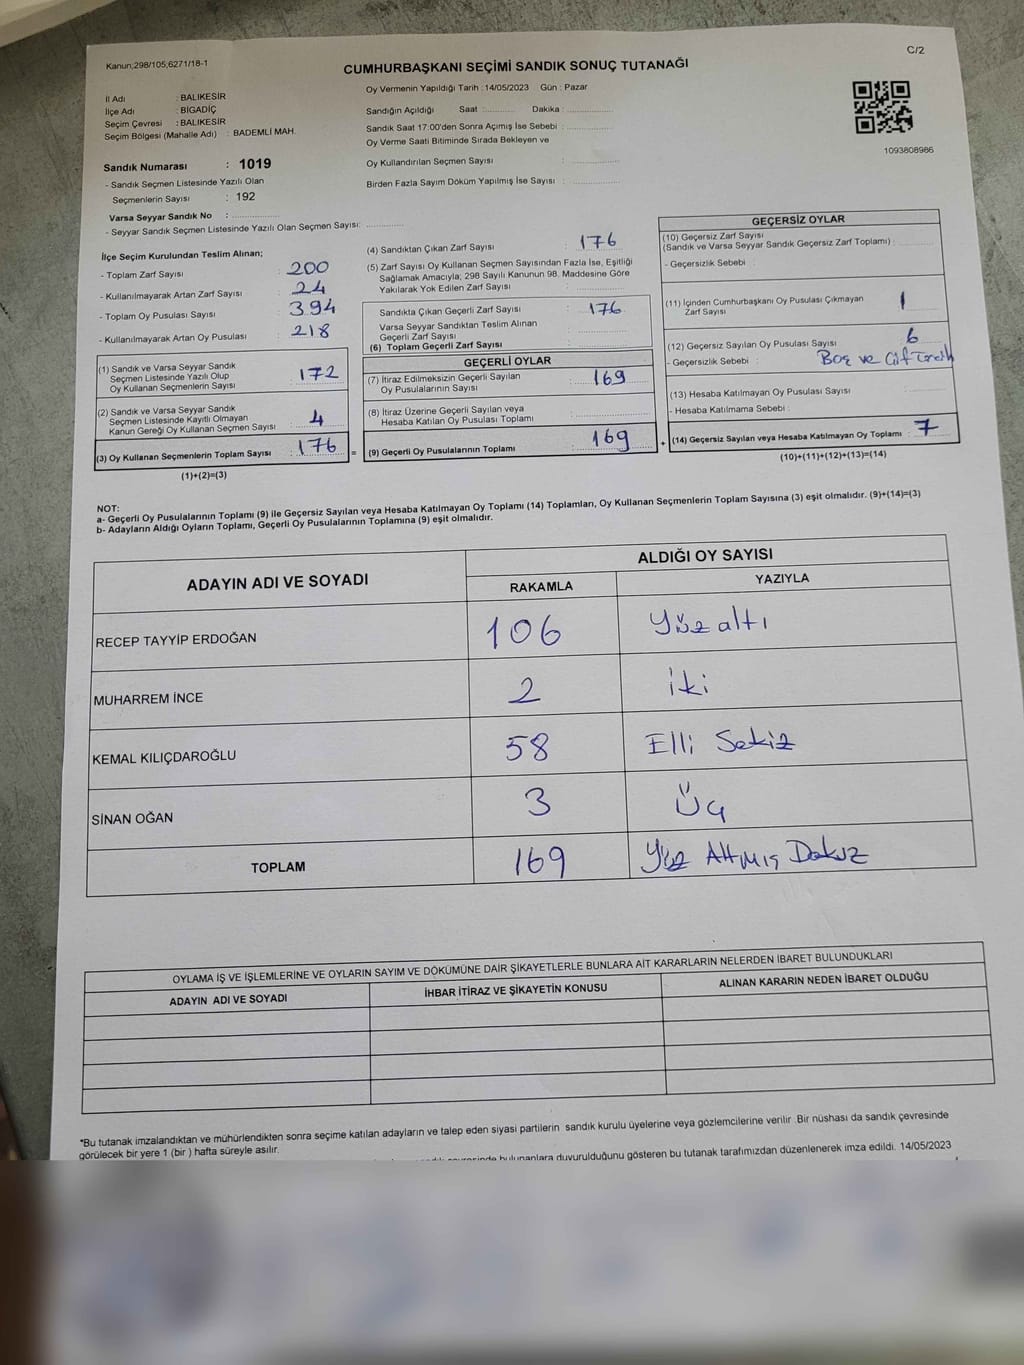 C/2
Kanun;298/105,6271/18-1
CUMHURBAŞKANI SEÇİMİ SANDIK SONUÇ TUTANAĞI
İl Adı : BALIKESİR
İlçe Adı : BİGADİÇ
Seçim Çevresi : BALIKESİR
Seçim Bölgesi (Mahalle Adı) : BADEMLİ MAH.
Sandık Numarası : 1019
- Sandık Seçmen Listesinde Yazılı Olan
Seçmenlerin Sayısı : 192
Varsa Seyyar Sandık No :
- Seyyar Sandık Seçmen Listesinde Yazılı Olan Seçmen Sayısı:
Oy Vermenin Yapıldığı Tarih : 14/05/2023 Gün : Pazar
Sandığın Açıldığı Saat : Dakika :
Sandık Saat 17:00'den Sonra Açımış İse Sebebi :
Oy Verme Saati Bitiminde Sırada Bekleyen ve
Oy Kullandırılan Seçmen Sayısı :
Birden Fazla Sayım Döküm Yapılmış İse Sayısı :
1093808986
İlçe Seçim Kurulundan Teslim Alınan;
- Toplam Zarf Sayısı : 200
- Kullanılmayarak Artan Zarf Sayısı : 24
- Toplam Oy Pusulası Sayısı : 394
- Kullanılmayarak Artan Oy Pusulası : 218
(1) Sandık ve Varsa Seyyar Sandık
Seçmen Listesinde Yazılı Olup
Oy Kullanan Seçmenlerin Sayısı : 172
(2) Sandık ve Varsa Seyyar Sandık
Seçmen Listesinde Kayıtlı Olmayan
Kanun Gereği Oy Kullanan Seçmen Sayısı : 4
(3) Oy Kullanan Seçmenlerin Toplam Sayısı : 176 =
(1)+(2)=(3)
(4) Sandıktan Çıkan Zarf Sayısı : 176
(5) Zarf Sayısı Oy Kullanan Seçmen Sayısından Fazla İse, Eşitliği
Sağlamak Amacıyla; 298 Sayılı Kanunun 98. Maddesine Göre
Yakılarak Yok Edilen Zarf Sayısı :
Sandıkta Çıkan Geçerli Zarf Sayısı : 176
Varsa Seyyar Sandıktan Teslim Alınan
Geçerli Zarf Sayısı :
(6) Toplam Geçerli Zarf Sayısı :
GEÇERLİ OYLAR
(7) İtiraz Edilmeksizin Geçerli Sayılan
Oy Pusulalarının Sayısı : 169
(8) İtiraz Üzerine Geçerli Sayılan veya
Hesaba Katılan Oy Pusulası Toplamı :
(9) Geçerli Oy Pusulalarının Toplamı : 169 +
GEÇERSİZ OYLAR
(10) Geçersiz Zarf Sayısı
(Sandık ve Varsa Seyyar Sandık Geçersiz Zarf Toplamı) :
- Geçersizlik Sebebi :
(11) İçinden Cumhurbaşkanı Oy Pusulası Çıkmayan
Zarf Sayısı : 1
(12) Geçersiz Sayılan Oy Pusulası Sayısı : 6
- Geçersizlik Sebebi : Boş ve Çift Tercih
(13) Hesaba Katılmayan Oy Pusulası Sayısı
- Hesaba Katılmama Sebebi :
(14) Geçersiz Sayılan veya Hesaba Katılmayan Oy Toplamı : 7
(10)+(11)+(12)+(13)=(14)
NOT:
a- Geçerli Oy Pusulalarının Toplamı (9) ile Geçersiz Sayılan veya Hesaba Katılmayan Oy Toplamı (14) Toplamları, Oy Kullanan Seçmenlerin Toplam Sayısına (3) eşit olmalıdır. (9)+(14)=(3)
b- Adayların Aldığı Oyların Toplamı, Geçerli Oy Pusulalarının Toplamına (9) eşit olmalıdır.
ADAYIN ADI VE SOYADI
ALDIĞI OY SAYISI
RAKAMLA YAZIYLA
RECEP TAYYİP ERDOĞAN 106 Yüz altı
MUHARREM İNCE 2 İki
KEMAL KILIÇDAROĞLU 58 Elli Sekiz
SİNAN OĞAN 3 Üç
TOPLAM 169 Yüz Altmış Dokuz
OYLAMA İŞ VE İŞLEMLERİNE VE OYLARIN SAYIM VE DÖKÜMÜNE DAİR ŞİKAYETLERLE BUNLARA AİT KARARLARIN NELERDEN İBARET BULUNDUKLARI
ADAYIN ADI VE SOYADI İHBAR İTİRAZ VE ŞİKAYETİN KONUSU ALINAN KARARIN NEDEN İBARET OLDUĞU
*Bu tutanak imzalandıktan ve mühürlendikten sonra seçime katılan adayların ve talep eden siyasi partilerin sandık kurulu üyelerine veya gözlemcilerine verilir. Bir nüshası da sandık çevresinde
görülecek bir yere 1 (bir ) hafta süreyle asılır.
bulunanlara duyurulduğunu gösteren bu tutanak tarafımızdan düzenlenerek imza edildi. 14/05/2023